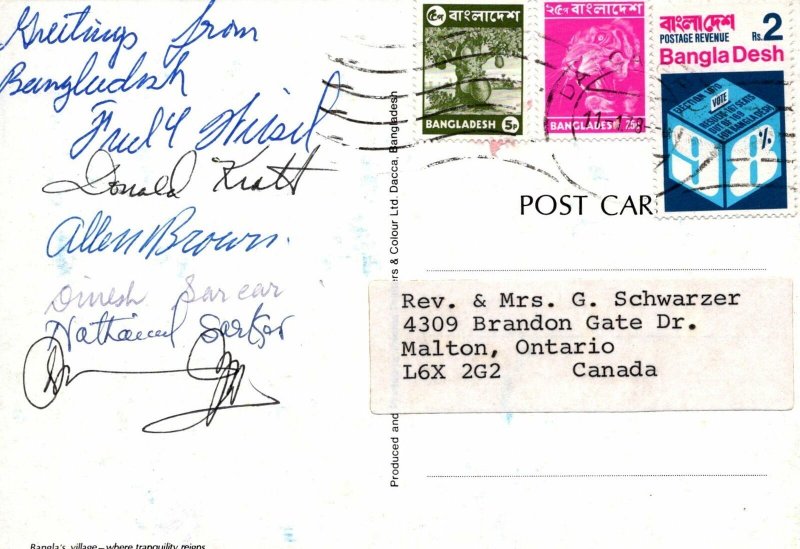 Greetings from
Bangladesh
Donald Kratt
Allen Brown.
Dinesh Sarcar
Nathaniel Sarkar
Bangla's village—where tranquility reigns
Produced and ers & Colour Ltd. Dacca, Bangladesh
৫প বাংলাদেশ
BANGLADESH 5p
২৫প বাংলাদেশ
BANGLADESH
বাংলাদেশ
POSTAGE REVENUE Rs. 2
Bangla Desh
VOTE
98%
POST CAR
Rev. & Mrs. G. Schwarzer
4309 Brandon Gate Dr.
Malton, Ontario
L6X 2G2 Canada